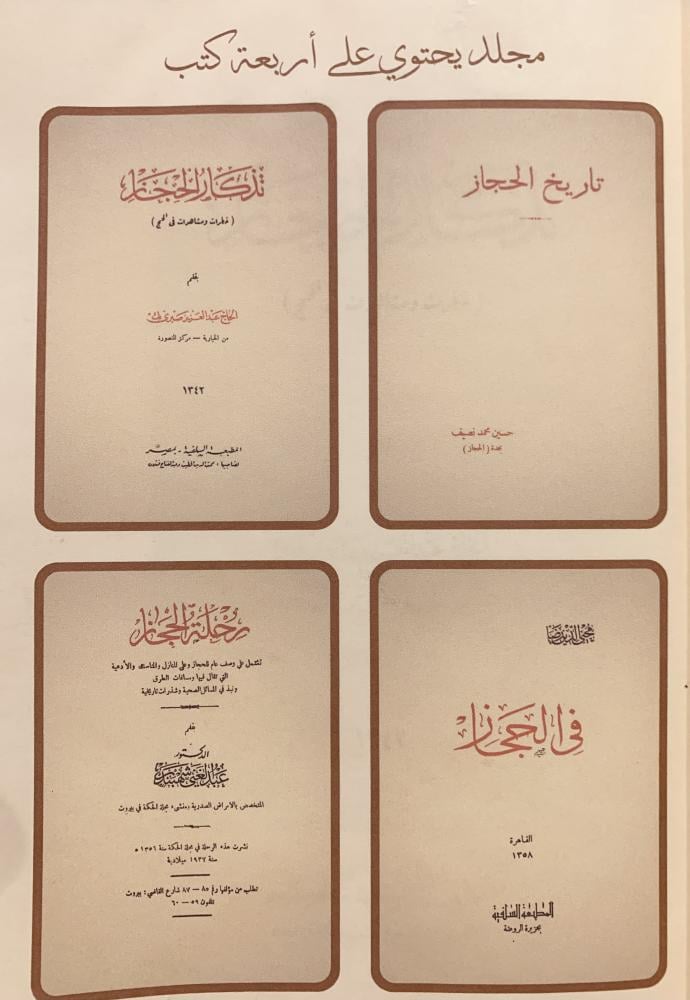 مجلد يحتوي على أربعة كتب
تاريخ الحجاز
حسين محمد نصيف
بجدة (الحجاز)
تذكار الحجاز
(خطرات ومشاهدات في الحج)
بقلم
الحاج عبد العزيز صبري بك
من الخيارية – مركز المنصورة
١٣٤٢
المطبعة السلفية - بمصر
لصاحبيها : محب الدين الخطيب وعبد الفتاح قتلان
محيي الدين رضا
في الحجاز
القاهرة
١٣٥٨
المطبعة السلفية
بجزيرة الروضة
رحلة الحجاز
تشتمل على وصف عام للحجاز وعلى المنازل والمناسك والأدعية
التي تقال فيها ومسافات الطرق
ونبذ في المسائل الصحية وشذرات تاريخية
بقلم
الدكتور
عبد الغني شهبندر
المتخصص بالامراض الصدرية ومنشىء مجلة الحكمة في بيروت
نشرت هذه الرحلة في مجلة الحكمة سنة ١٣٥٦ ه
سنة ١٩٣٧ ميلادية
تطلب من مؤلفها رقم ٨٥ – ٨٧ شارع القاضي : بيروت
تلفون ٥٩ – ٦٠